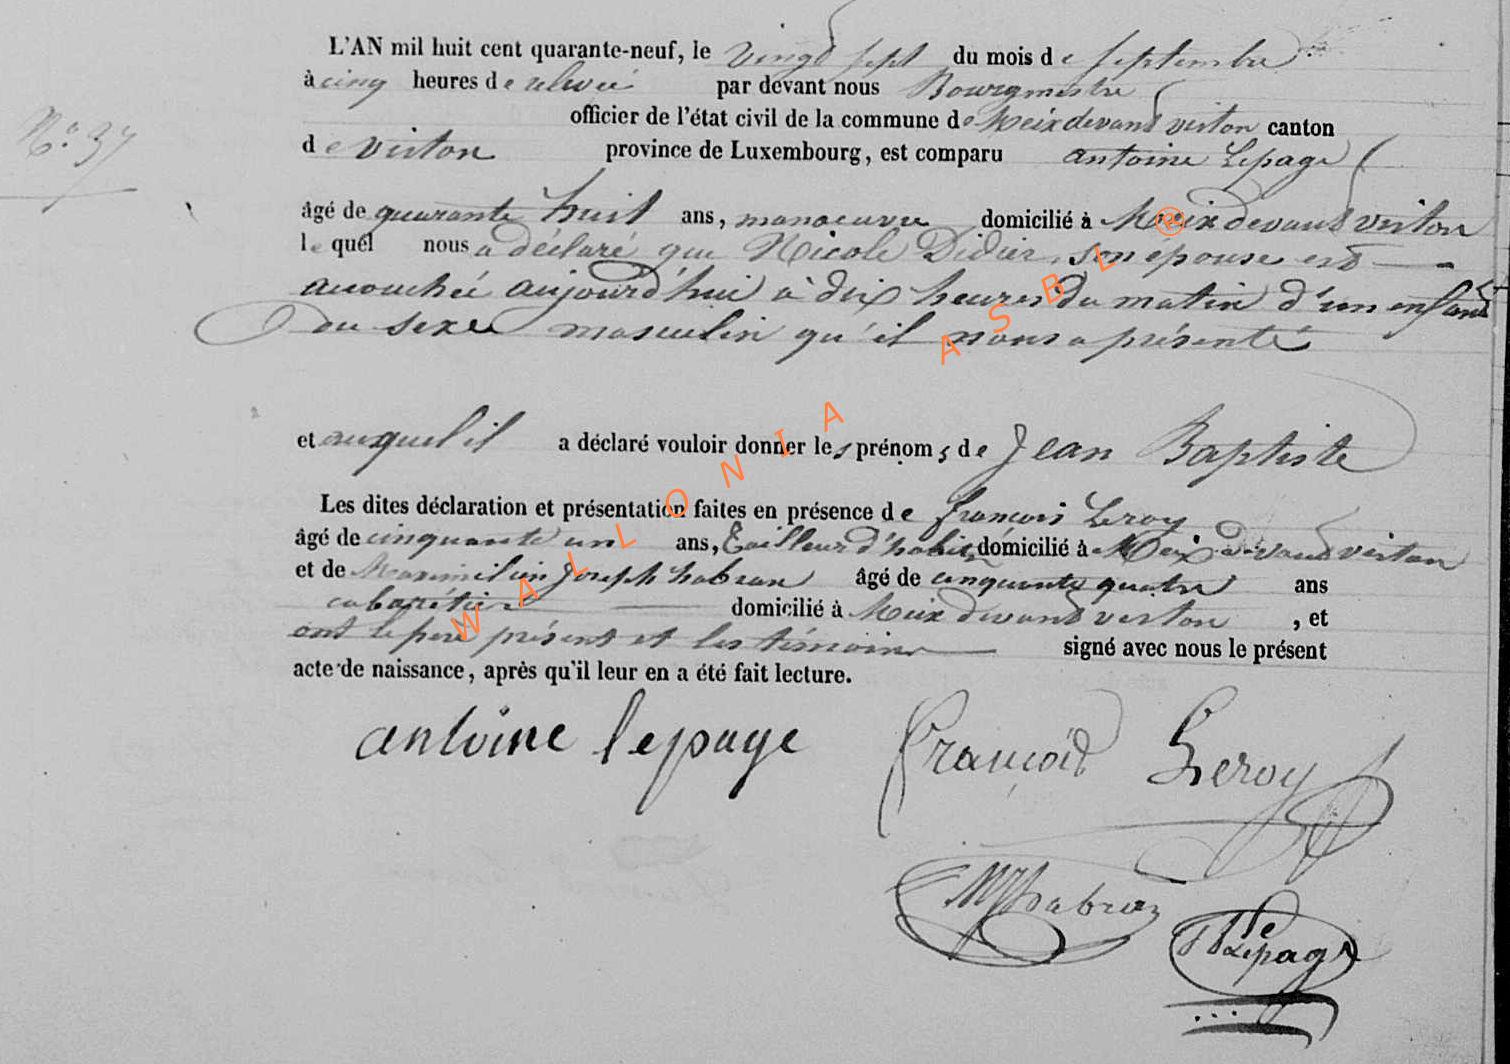 L'AN mil huit cent quarante-neuf, le vingt sept du mois de septembre
à cinq heures de relevée par devant nous Bourgmestre
officier de l'état civil de la commune de Meix devant virton canton
de virton province de Luxembourg, est comparu antoine Lepage
N° 37
âgé de quarante huit ans, manoeuvre domicilié à Meix devant virton
le quél nous a déclaré que Nicole Didier, son épouse est
accouchée aujourd'hui à dix heures du matin d'un enfant
du sexe masculin qu'il nous a présenté
et auquel il a déclaré vouloir donner les prénoms de Jean Baptiste
Les dites déclaration et présentation faites en présence de françois Leroy
âgé de cinquante un ans, Tailleur d'habits domicilié à Meix devant virton
et de Maximilien Joseph habran âgé de cinquante quatre ans
cabarétier domicilié à Meix devant virton , et
ont le père présent et les témoins signé avec nous le présent
acte de naissance, après qu'il leur en a été fait lecture.
antoine lepage
François Leroy
MJhabran
Lepage
WALLONIA ASBL ®